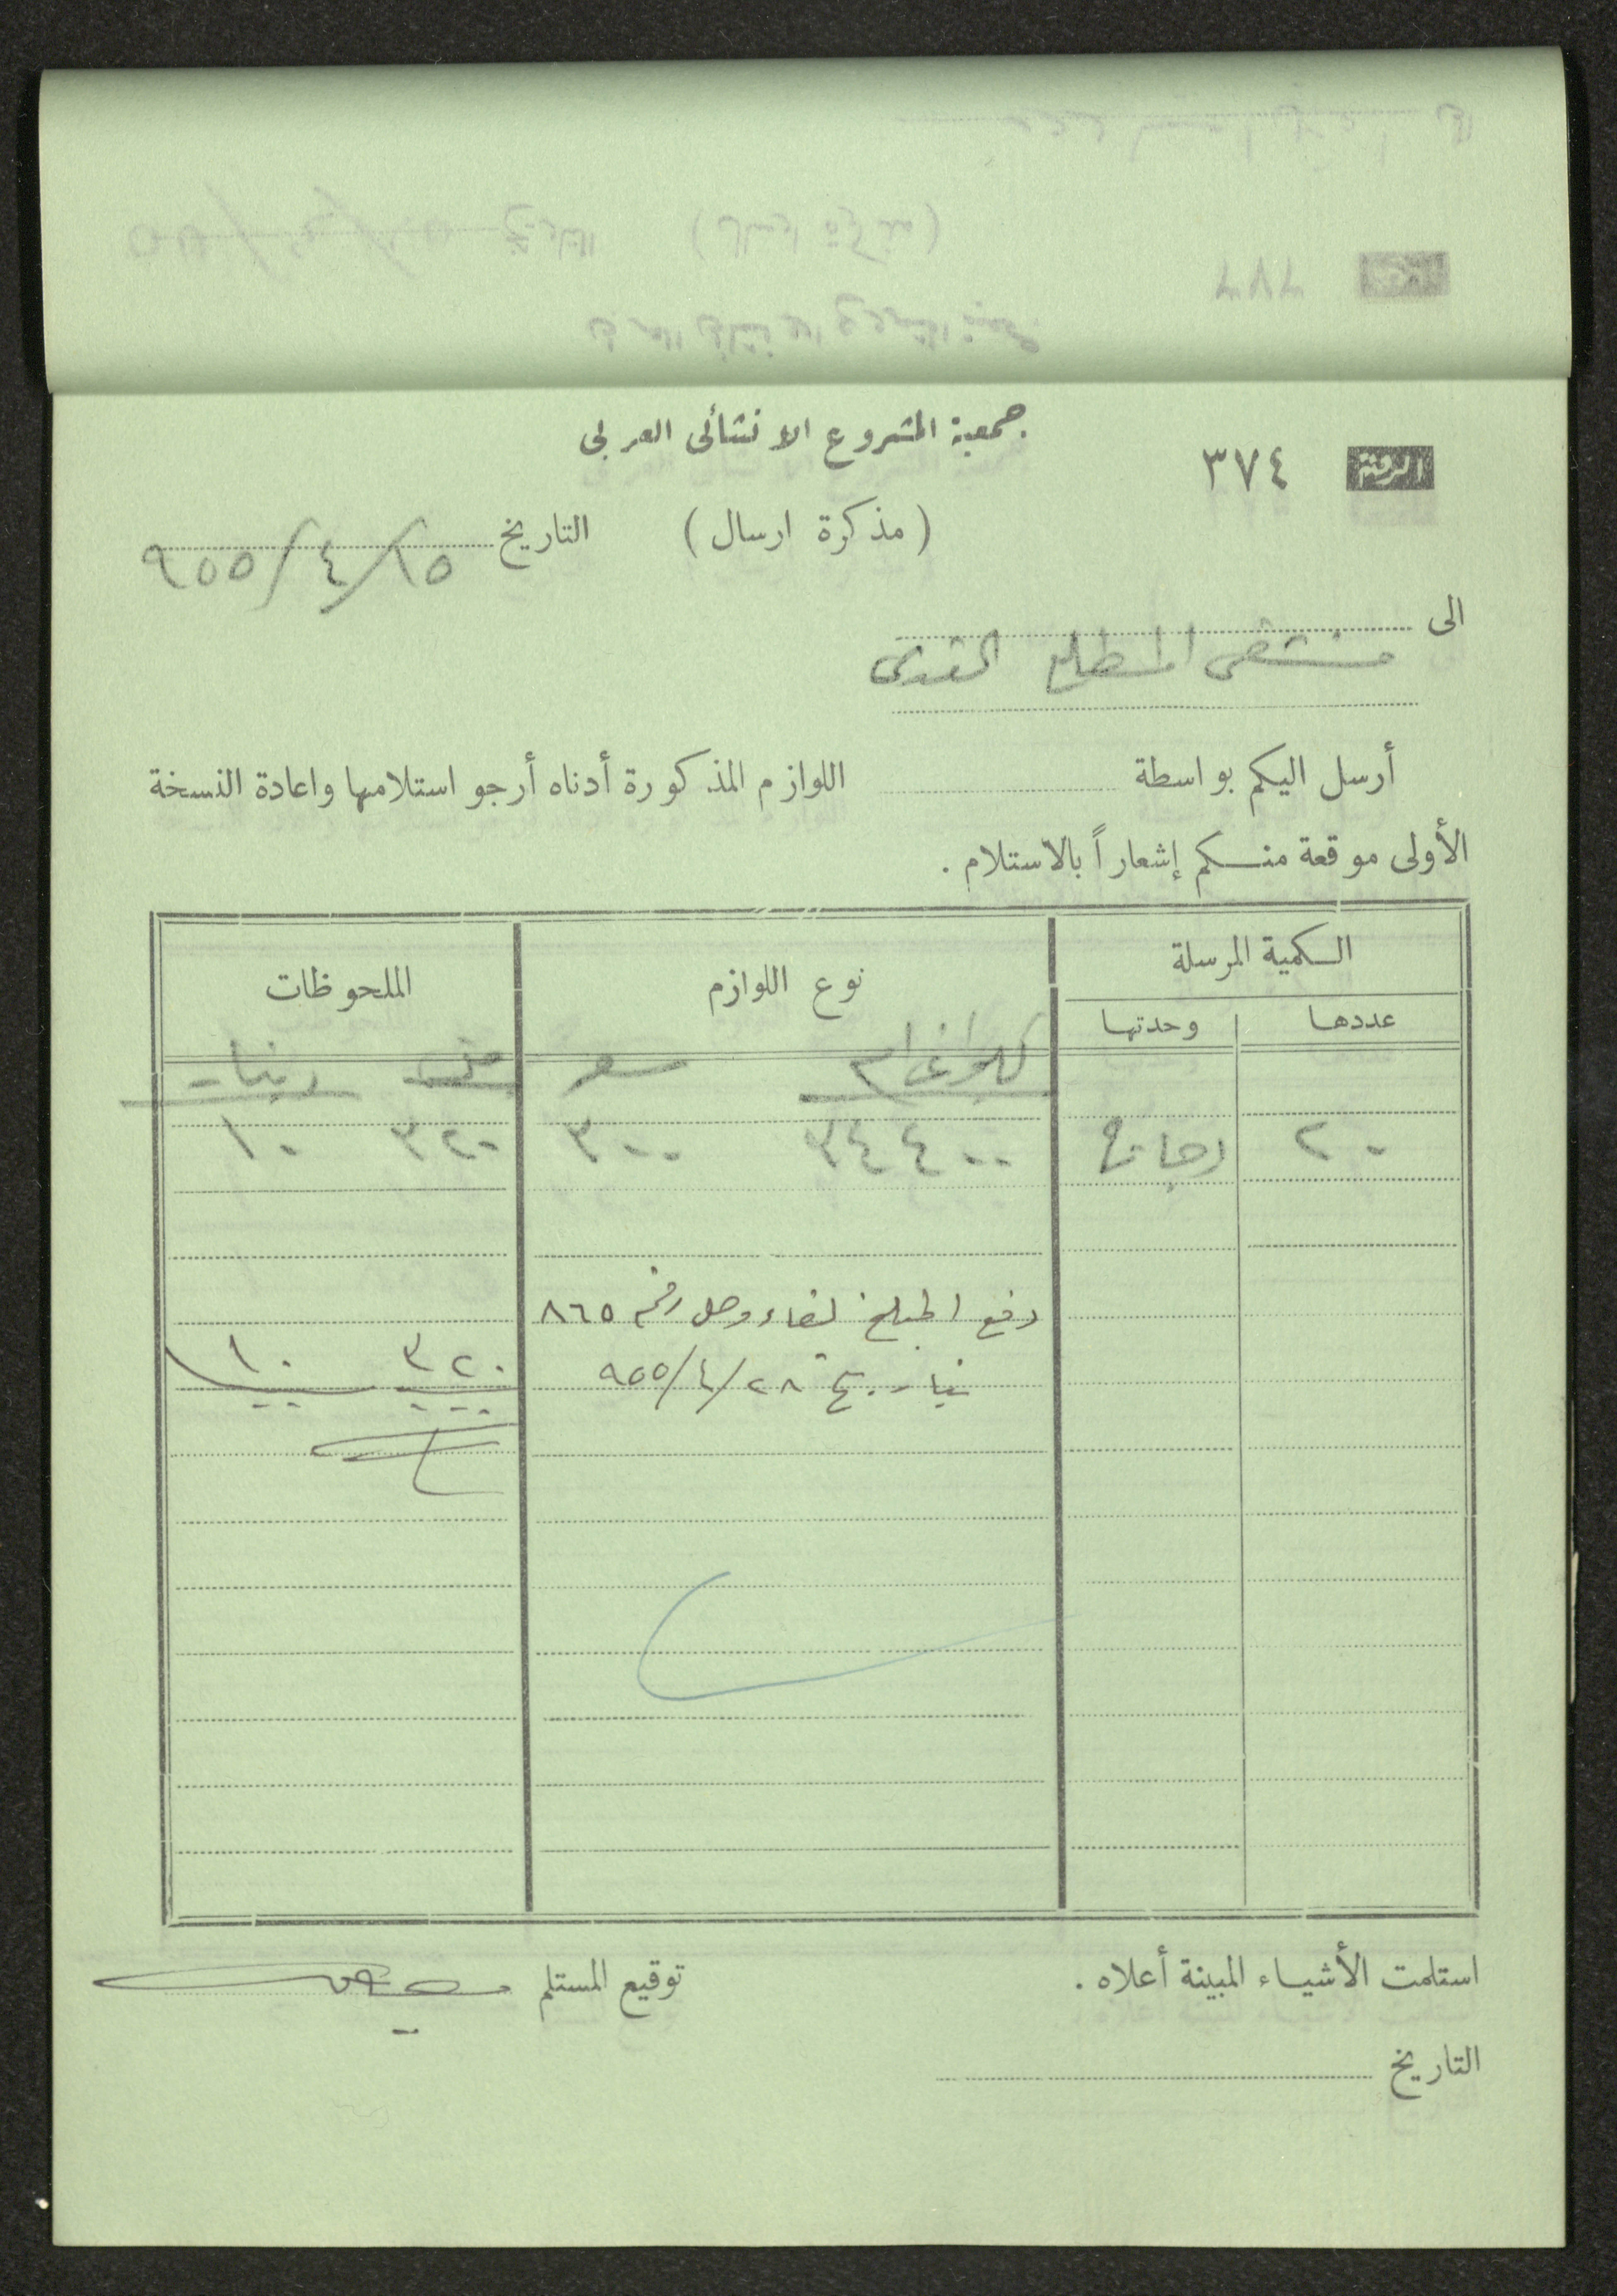 جمعية المشروع الانشائى العربى
الرقم ٣٧٤
(مذكرة ارسال)
التاريخ ١٥/٤/٩٥٥
الى
مستشفى المطلع القدس
أرسل اليكم بواسطة اللوازم المذكورة أدناه أرجو استلامها واعادة النسخة
الأولى موقعة منكم إشعاراً بالاستلام .
الكمية المرسلة نوع اللوازم الملحوظات
عددها وحدتها
كيلو غرام سعر فلس دينار
٢٠ دجاجة ٣٤٤٠٠ ٣٠٠ ٣٢٠ ١٠
دفع المبلغ لقاء وصل رقم ٨٦٥
بتاريخ ٢٨/٤/٩٥٥ ٣٢٠ ١٠
استلمت الأشياء المبينة أعلاه .
توقيع المستلم
التاريخ